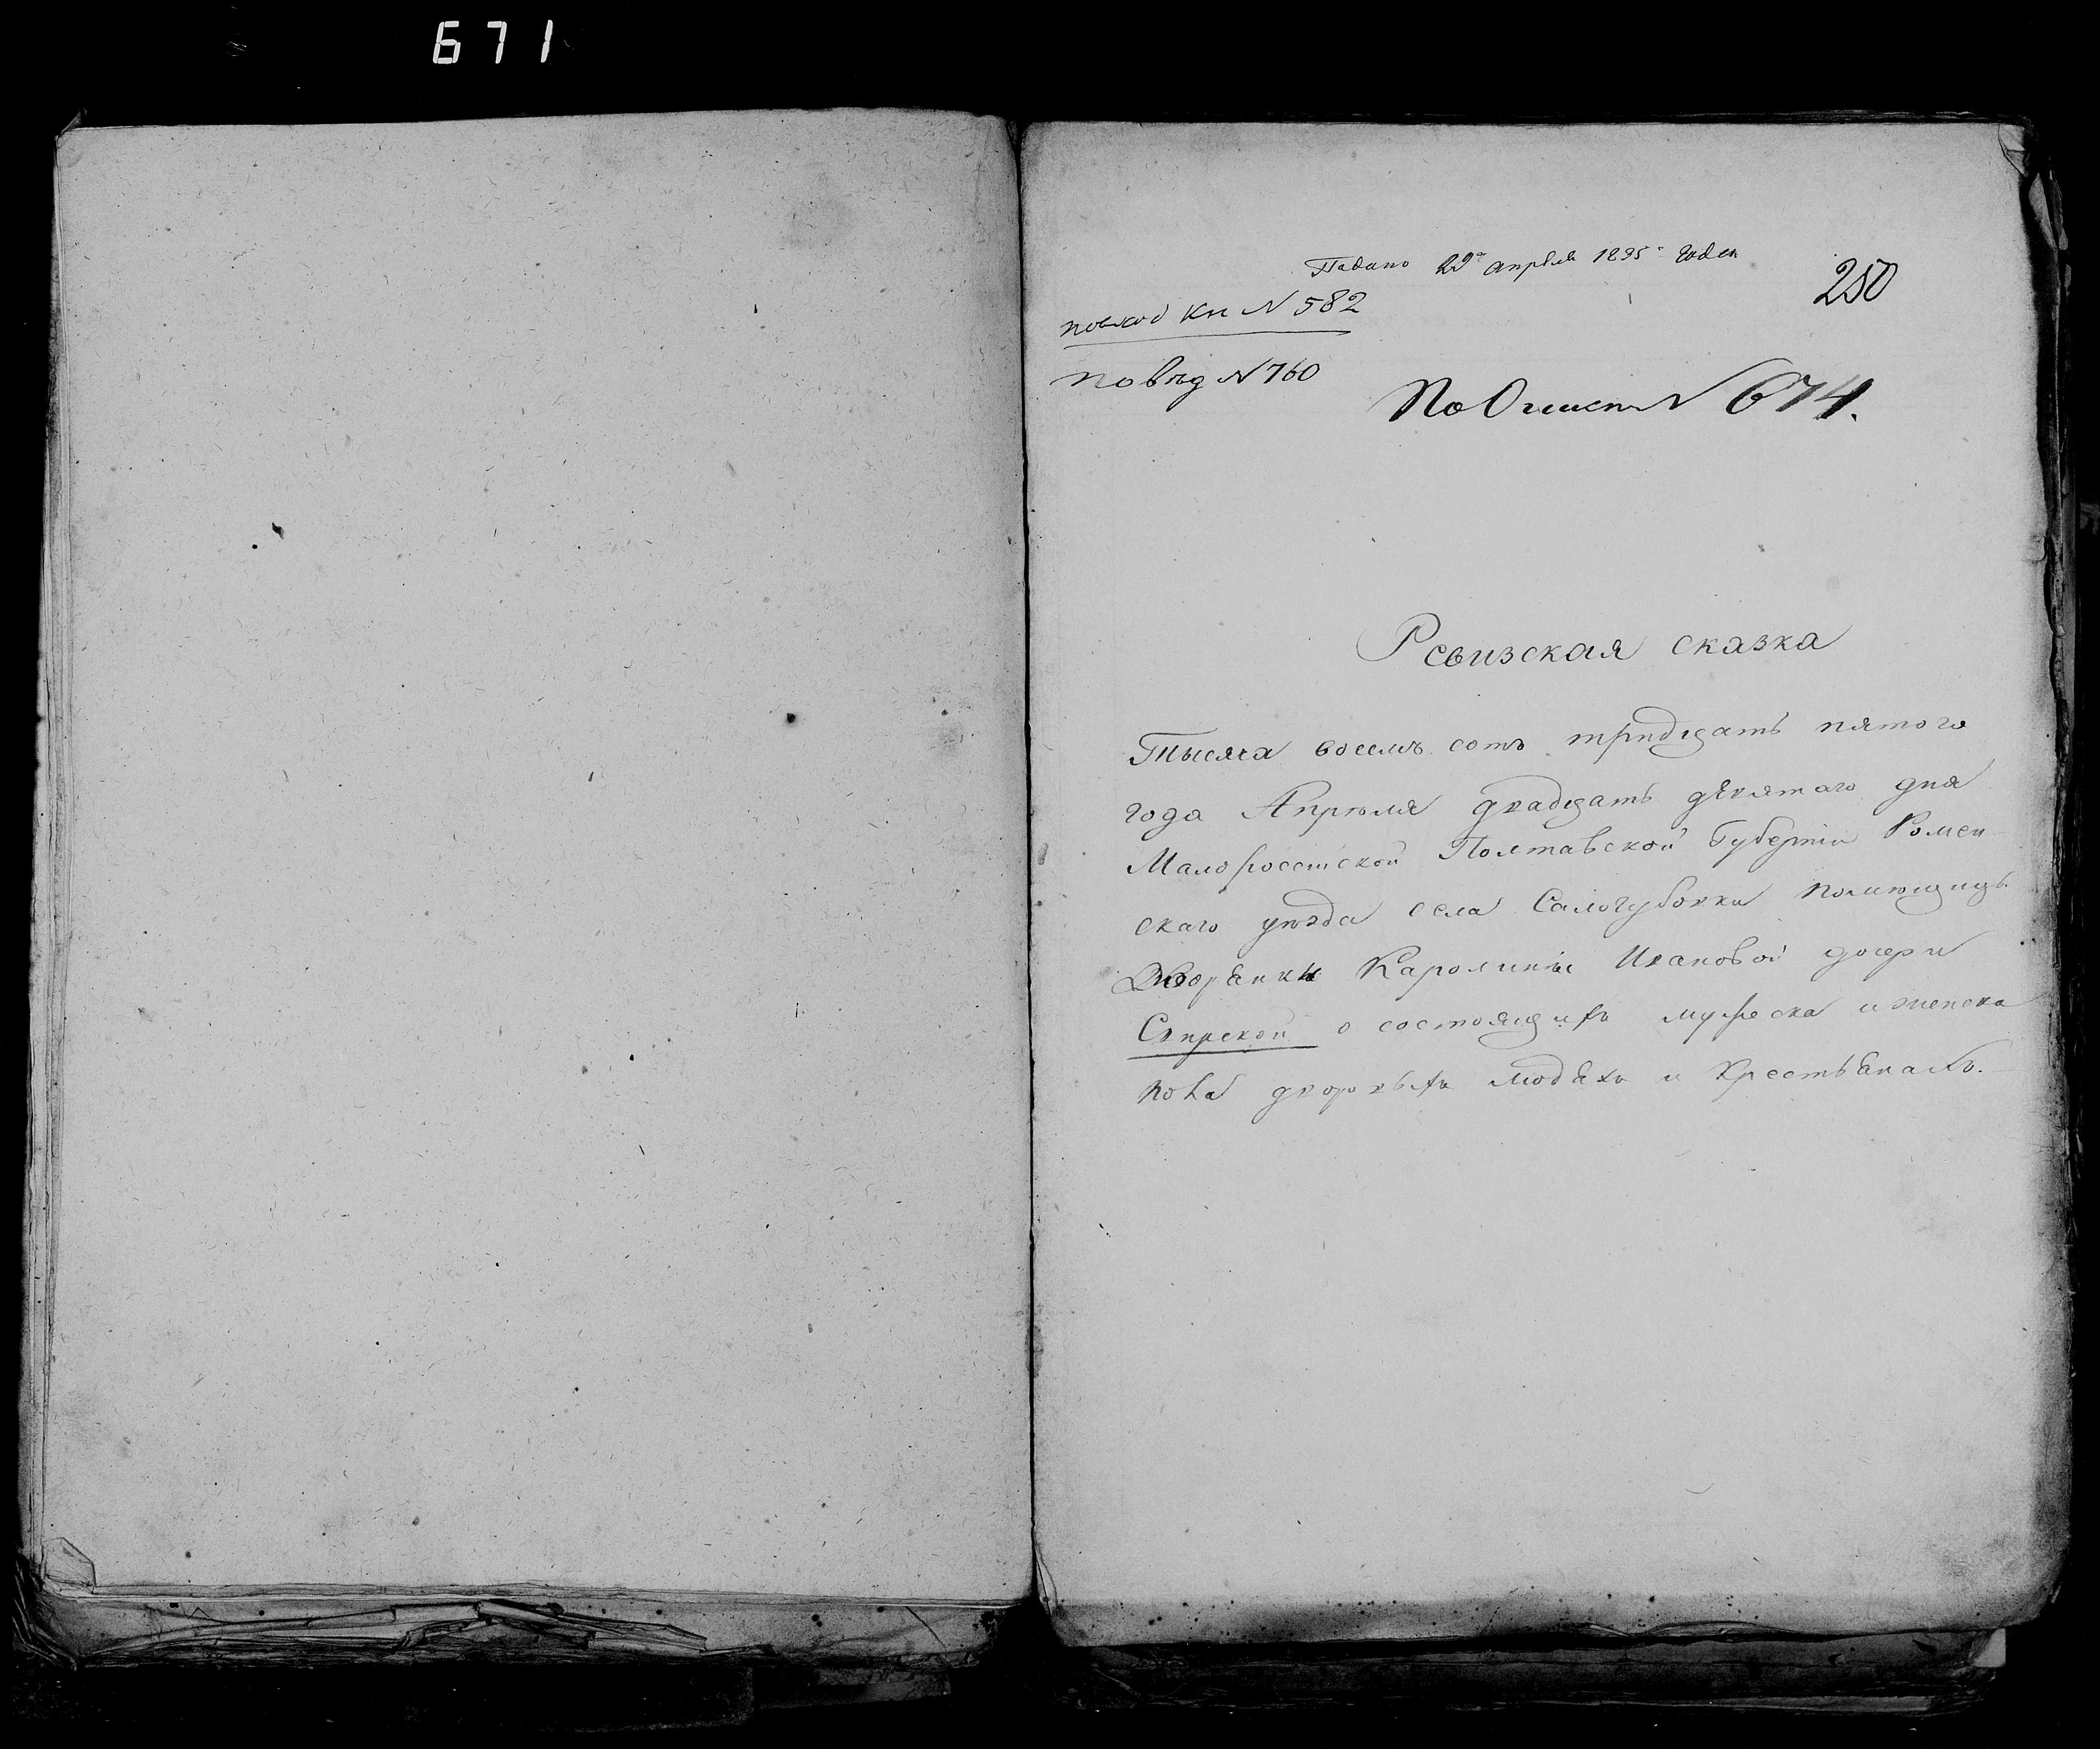 671
Подано 29го апреля 1835 года
250
по вход кн N 582
по вѣд N 760
По Описи N 674.
Ревизская сказка
Тысяча восемъ сотъ тридцать пятого
года Апреля двадцать девятаго дня
Малороссійской Полтавской Губерніи Ромен-
скаго уѣзда села Самогубовки помѣщицы
Дворянки Каролины Ивановой дочери
о состоящихъ мужеска и женска
пола дворовыхъ людяхъ и крестьянахъ.